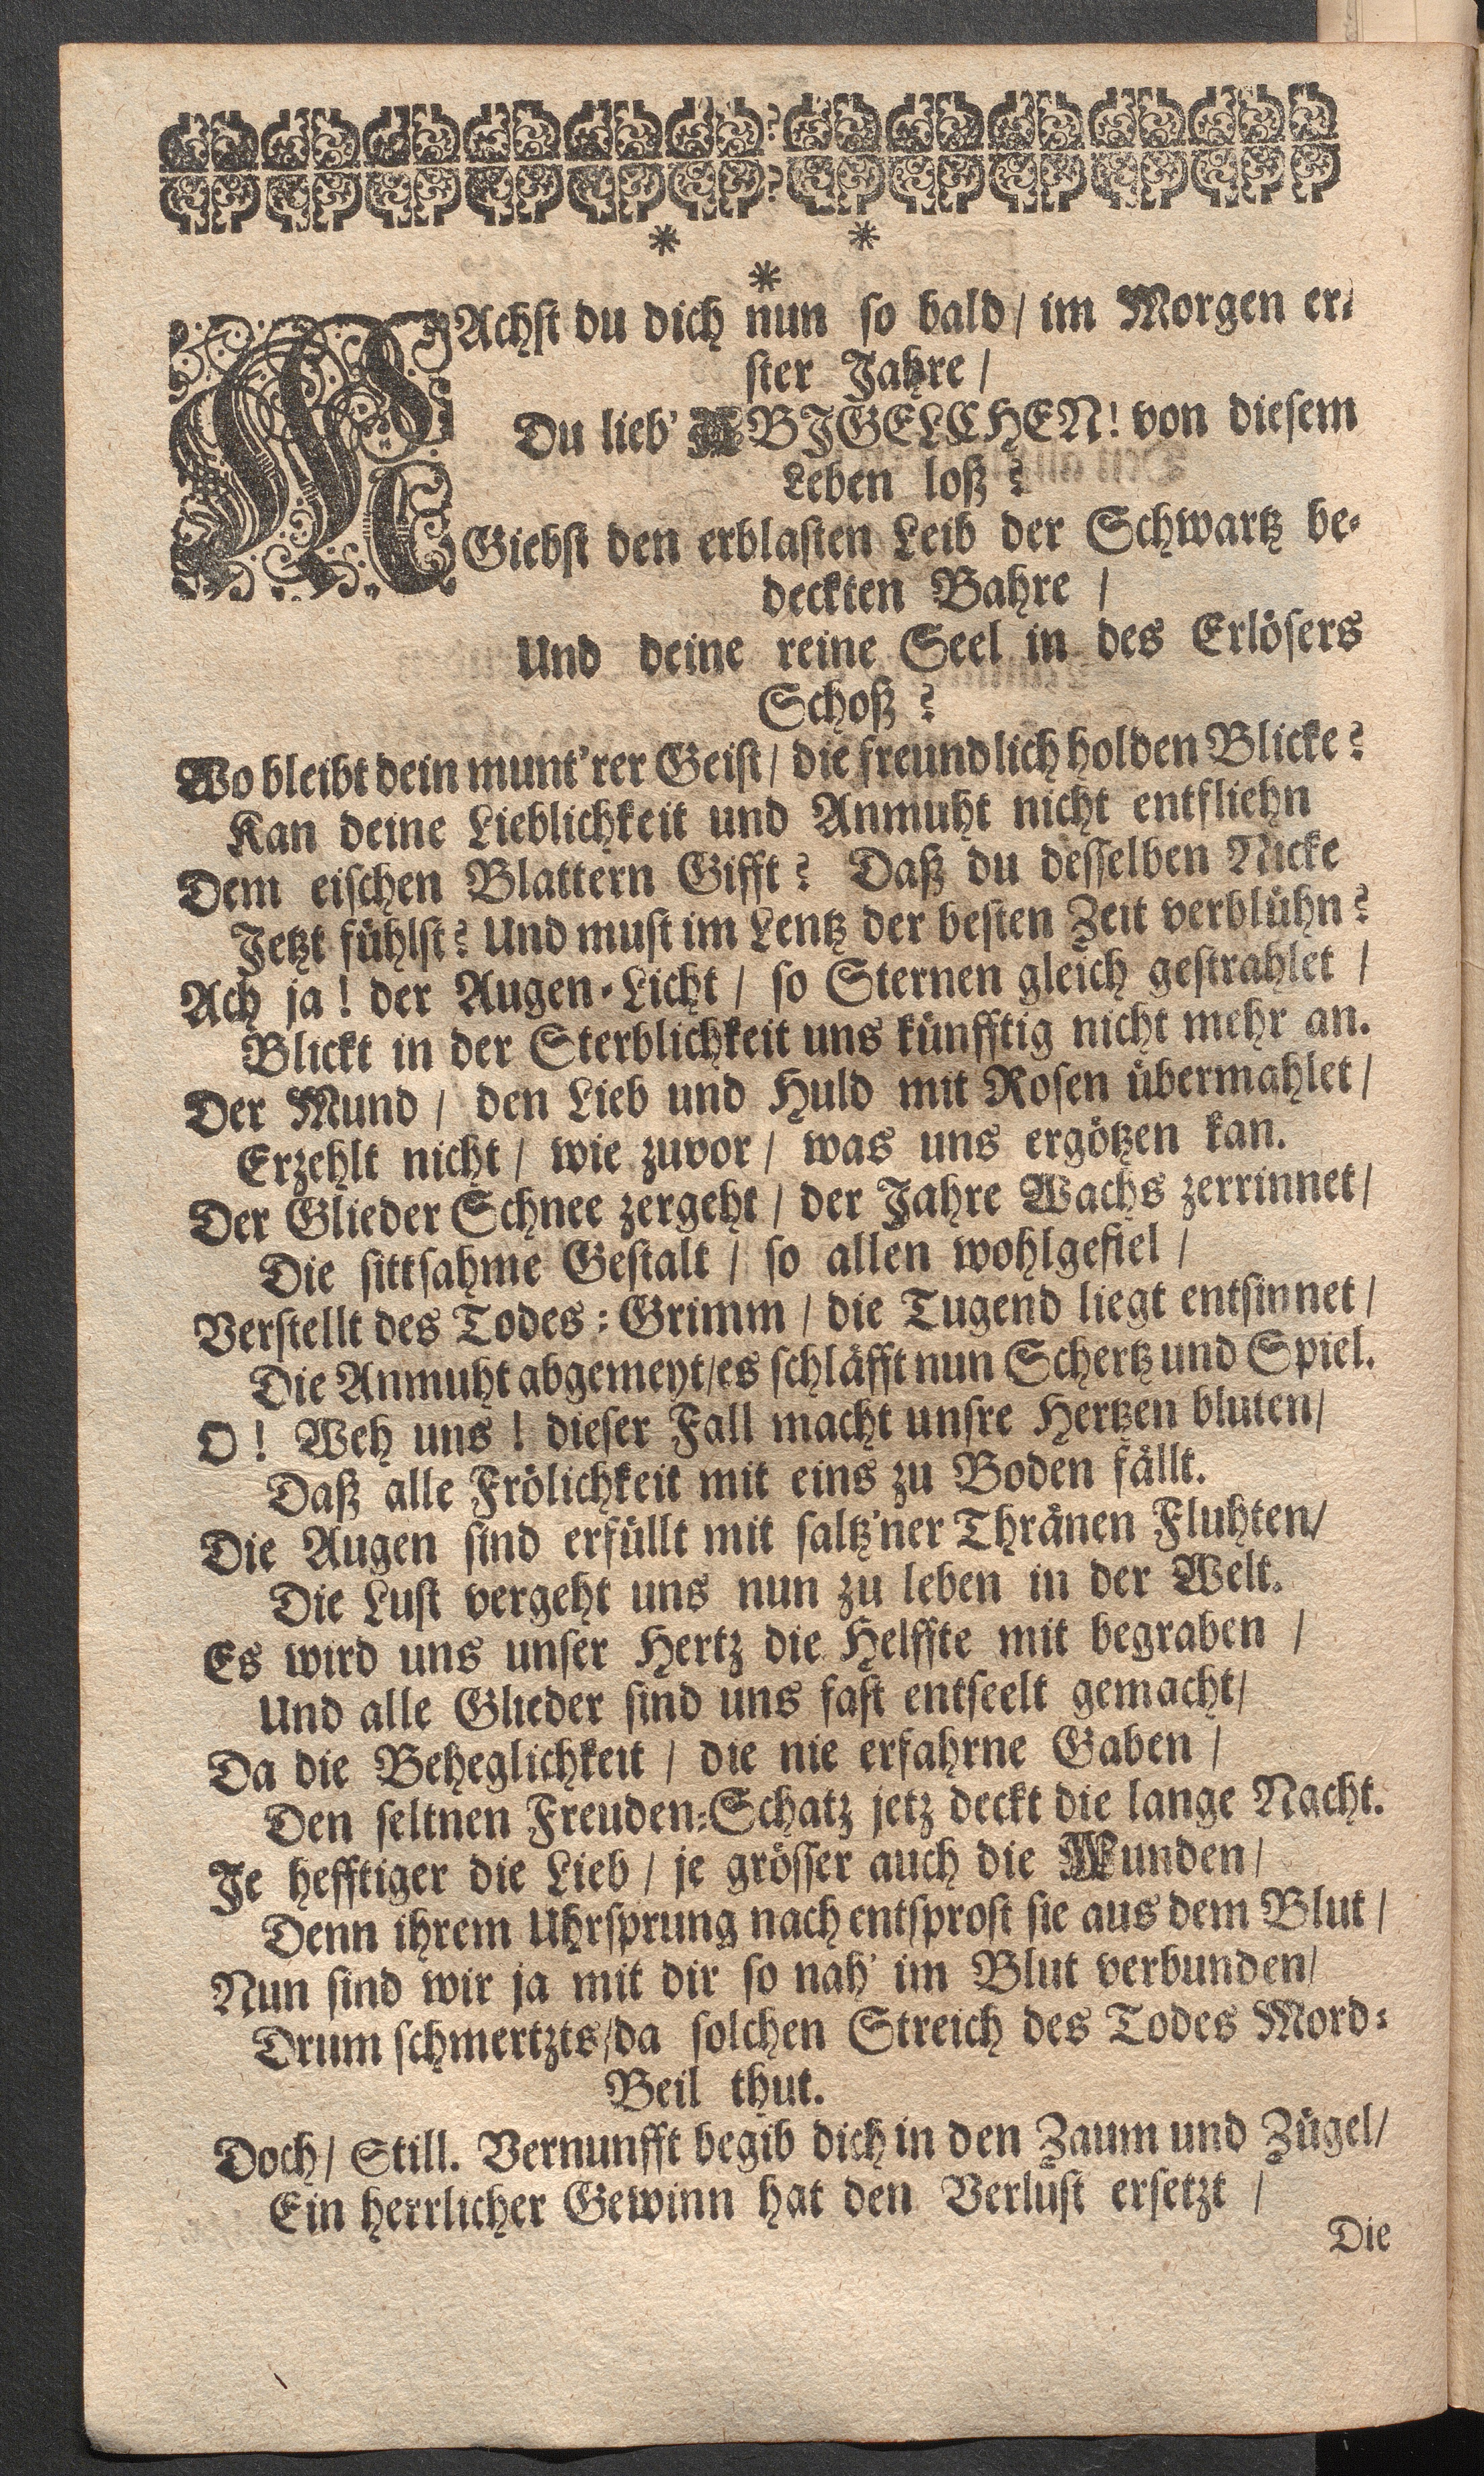 * *
*
MAchst du dich nun so bald / im Morgen er-
ster Jahre /
Du lieb' ABJGELCHEN! von diesem
Leben loß?
Giebst den erblasten Leib der Schwartz be-
deckten Bahre /
Und deine reine Seel in des Erlösers
Schoß?
Wo bleibt dein munt'rer Geist / die freundlich holden Blicke?
Kan deine Lieblichkeit und Anmuht nicht entfliehn
Dem eischen Blattern Gifft? Daß du desselben Nicke
Jetzt fühlst? Und must im Lentz der besten Zeit verblühn?
Ach ja! der Augen-Licht / so Sternen gleich gestrahlet /
Blickt in der Sterblichkeit uns künfftig nicht mehr an.
Der Mund / den Lieb und Huld mit Rosen übermahlet /
Erzehlt nicht / wie zuvor / was uns ergötzen kan.
Der Glieder Schnee zergeht / der Jahre Wachs zerrinnet /
Die sittsahme Gestalt / so allen wohlgefiel /
Verstellt des Todes-Grimm / die Tugend liegt entsinnet /
Die Anmuht abgemeyt / es schläfft nun Schertz und Spiel.
O! Weh uns! dieser Fall macht unsre Hertzen bluten /
Daß alle Frölichkeit mit eins zu Boden fällt.
Die Augen sind erfüllt mit saltz'ner Thränen Fluhten /
Die Lust vergeht uns nun zu leben in der Welt.
Es wird uns unser Hertz die Helffte mit begraben /
Und alle Glieder sind uns fast entseelt gemacht /
Da die Beheglichkeit / die nie erfahrne Gaben /
Den seltnen Freuden-Schatz jetz deckt die lange Nacht.
Je hefftiger die Lieb / je grösser auch die Wunden /
Denn ihrem Uhrsprung nach entsprost sie aus dem Blut /
Nun sind wir ja mit dir so nah' im Blut verbunden /
Drum schmertzts / da solchen Streich des Todes Mord-
Beil thut.
Doch / Still. Vernunfft begib dich in den Zaum und Zügel /
Ein herrlicher Gewinn hat den Verlust ersetzt /
Die